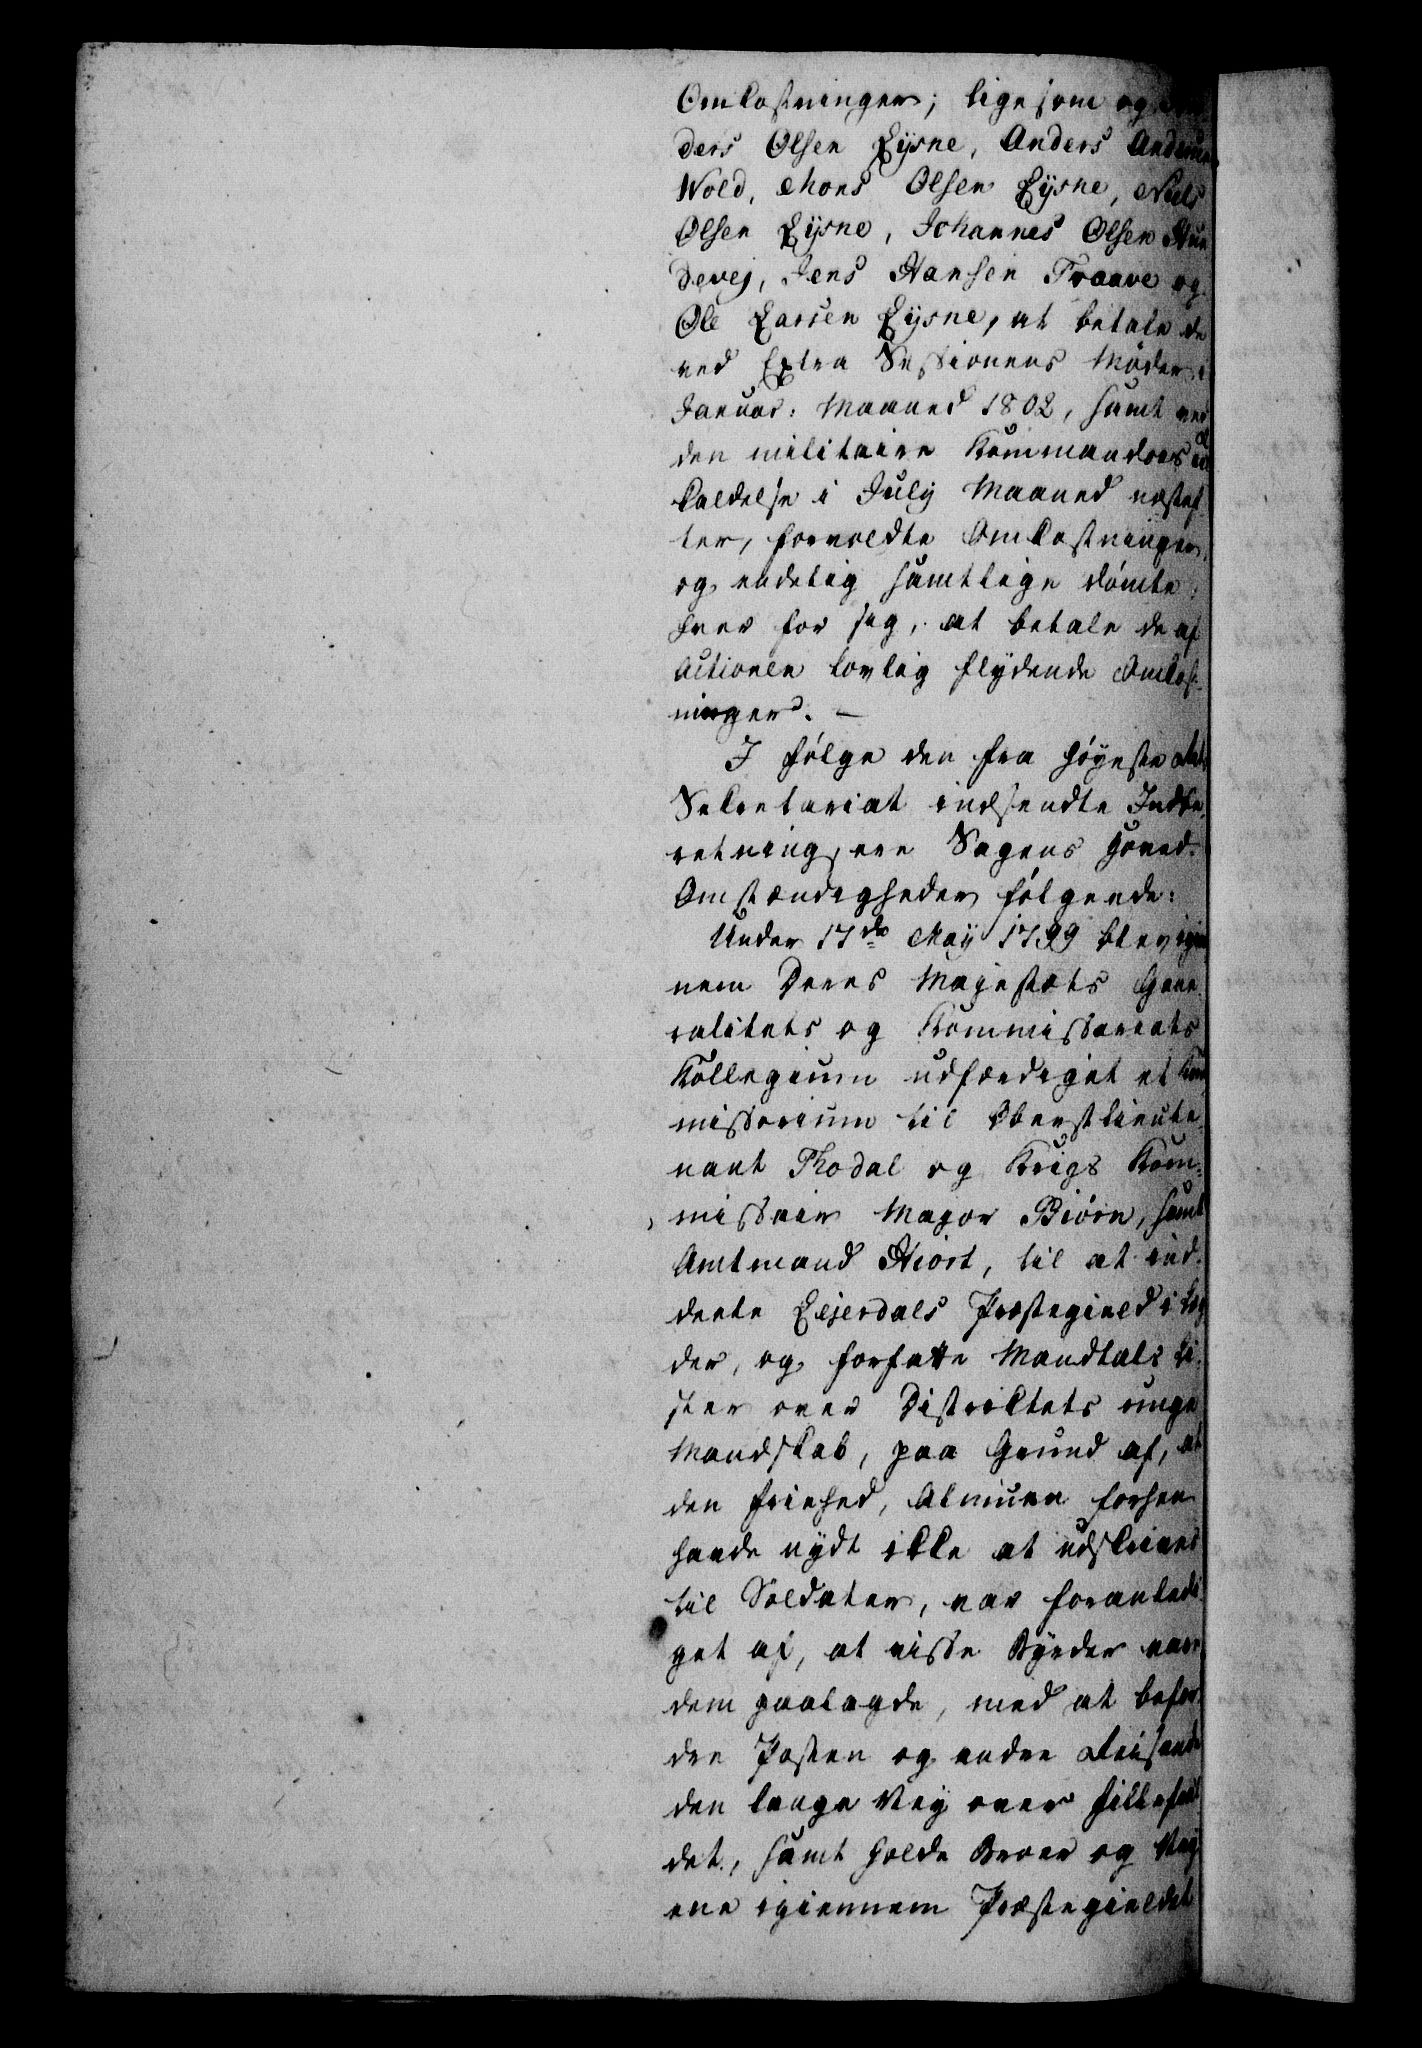 Omkostninger; ligesom og An
ders Olsen Lysne, Anders Andersen
Wold, Mons Olsen Lysne, Niels
Olsen Lysne, Johannes Olsen Hun
devej, Jens Hansen Traave og
Ole Larsen Lysne, at betale de
ved Extra Sessionens Møder i
Januar: Maaned 1802, samt ved
den militaire Kommandoes ud
kaldelse i July Maaned næstef
ter, forvoldte Omkostninger,
og endelig samtlige Dømte:
hver for sig, at betale de af
Actionen lovlig flydende Omkost-
ninger. —
I følge den fra Høyeste Rets
Sekretariat indsendte Indbe
retning, ere Sagens Hoved-
Omstændigheder følgende:
Under 17de May 1799 blev igien
nem Deres Majestæts Gene
ralitets og Kommissariats
Kollegium udfærdiget et Kom
missorium til Oberstlieute
nant Thodal og Krigs Kom-
missair Major Biørn, samt
Amtmand Hiort, til at ind-
deele Leyerdals Præstegield i Læg
der, og forfatte Mandtals Li
ster over Distriktets unge
Mandskab, paa Grund af, at
den Friehed, Almuen forhen
havde nydt ikke at udskrives
til Soldater, var foranledi
get af, at visse Byrder vare
dem paalagde, med at befor
dre Posten og andre Reisende
den lange Vey over Fillefiel
det, samt holde Broer og Vey
ene igiennem Præstegieldet